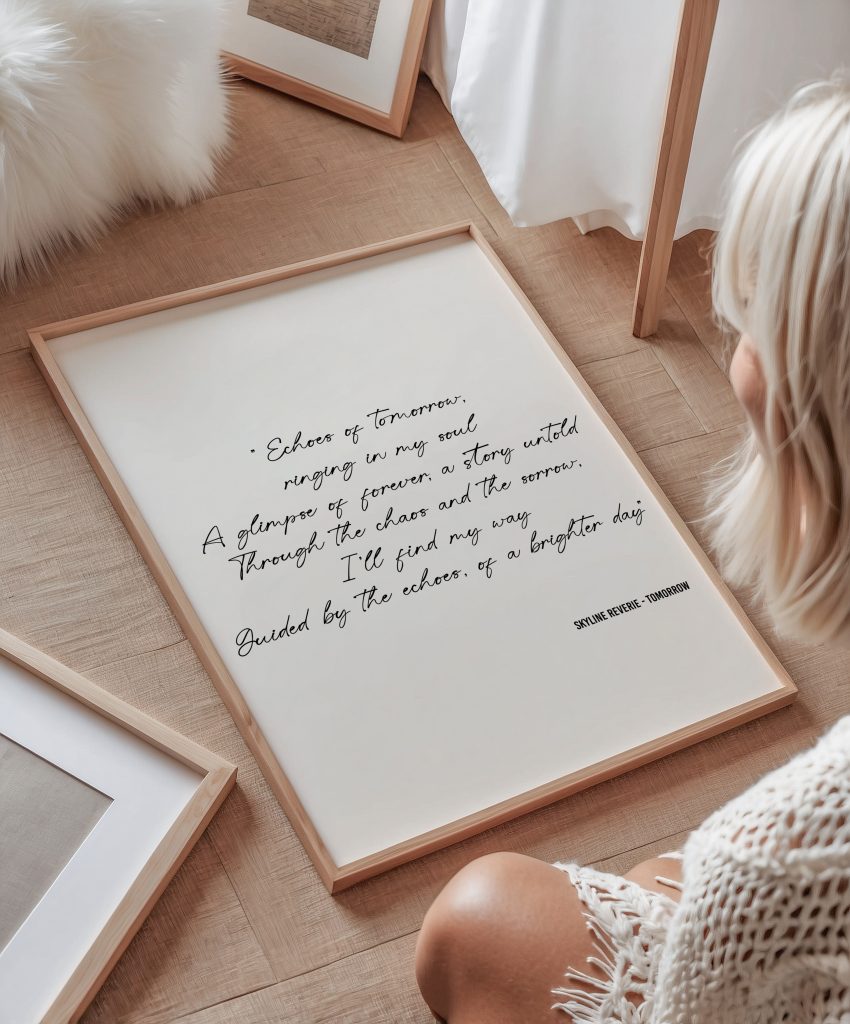 " Echoes of tomorrow,
ringing in my soul
A glimpse of forever, a story untold
Through the chaos and the sorrow,
I'll find my way
Guided by the echoes, of a brighter day"
SKYLINE REVERIE - TOMORROW